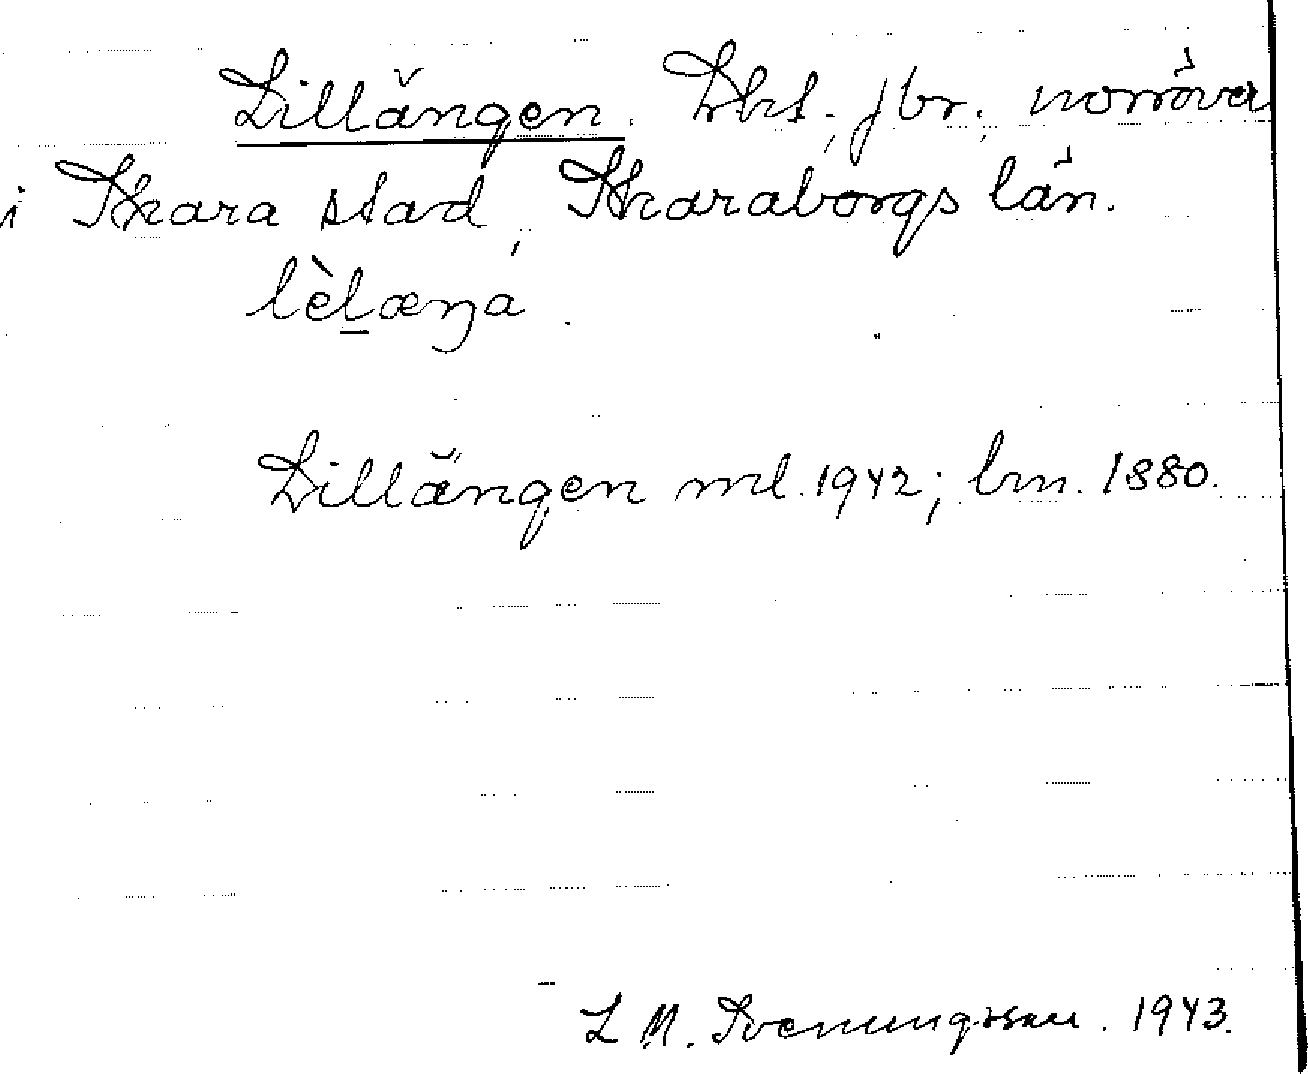 Lillängen. Lht, jbr, norröver
i Skara stad, Skaraborgs län.
lèl̠æŋa
Lillängen ml. 1942; lm. 1880.
L M. Svenungsson. 1943.